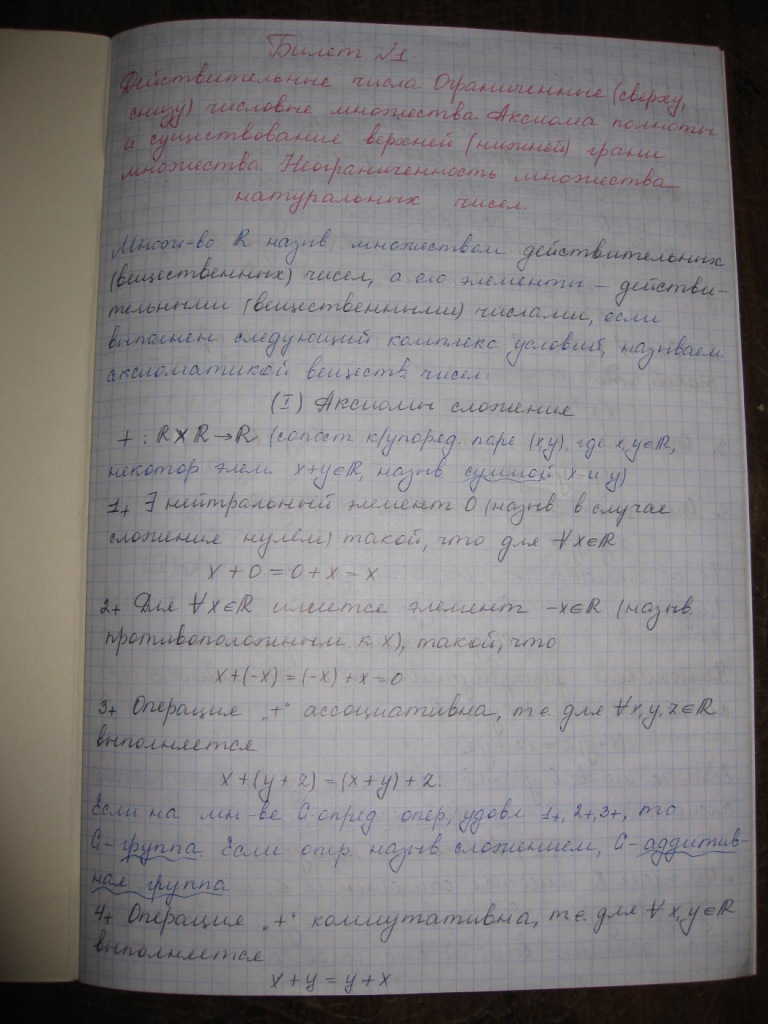 Билет №1
Действительные числа. Ограниченные (сверху,
снизу) числовые множества. Аксиома полноты
и существование верхней (нижней) грани
множества. Неограниченность множества
натуральных чисел.
Множ-во ℝ назыв множеством действительных
(вещественных) чисел, а его элементы – действи-
тельными (вещественными) числами, если
выполнен следующий комплекс условий, называем.
аксиоматикой веществ. чисел:
(I) Аксиомы сложение
+ : ℝ×ℝ→ℝ (сопост к/упоряд. паре (x,y), где x,y∈ℝ,
некотор элем. x+y∈ℝ, назыв суммой x и y)
1₊ ∃ нейтральный элемент 0 (назыв в случае
сложения нулём) такой, что для ∀x∈ℝ
x+0=0+x=x
2₊ Для ∀x∈ℝ имеется элемент -x∈ℝ (назыв.
противоположным к x), такой, что
x+(-x)=(-x)+x=0
3₊ Операция „+“ ассоциативна, т.е. для ∀x,y,z∈ℝ
выполняется
x+(y+z)=(x+y)+z.
Если на мн-ве G опред. опер, удовл 1₊, 2₊, 3₊, то
G – группа. Если опр. назыв сложением, G – аддитив-
ная группа
4₊ Операция „+“ коммутативна, т.е. для ∀x,y∈ℝ
выполняется
x+y=y+x